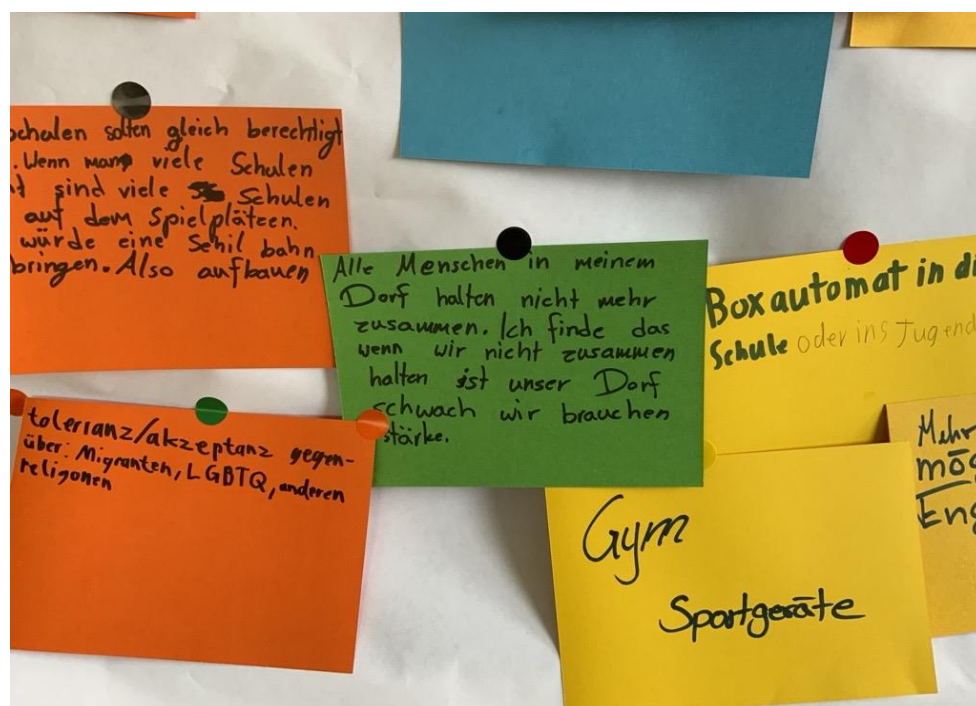 schulen solten gleich berechtigt
. Wenn man viele Schulen
sind viele Schulen
auf dem Spielplätzen.
würde eine Sehil bahn
bringen. Also aufbauen
Alle Menschen in meinem
Dorf halten nicht mehr
zusammen. Ich finde das
wenn wir nicht zusammen
halten ist unser Dorf
schwach wir brauchen
stärke.
Boxautomat in di
Schule oder ins Jugend
tolerianz/akzeptanz gegen-
über: Migranten, LGBTQ, anderen
religonen
Gym
Sportgeräte
Mehr
mög
Eng